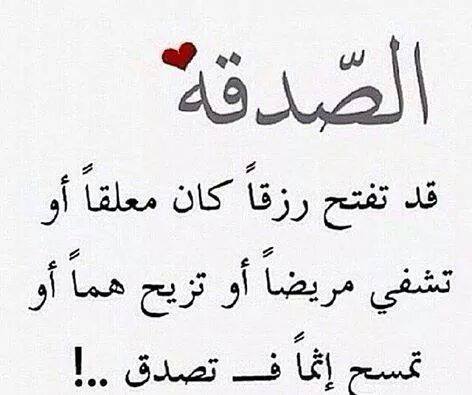 الصّدقه
قد تفتح رزقاً كان معلقاً أو
تشفي مريضاً أو تزيح هماً أو
تمسح إثماً فــ تصدق ..!